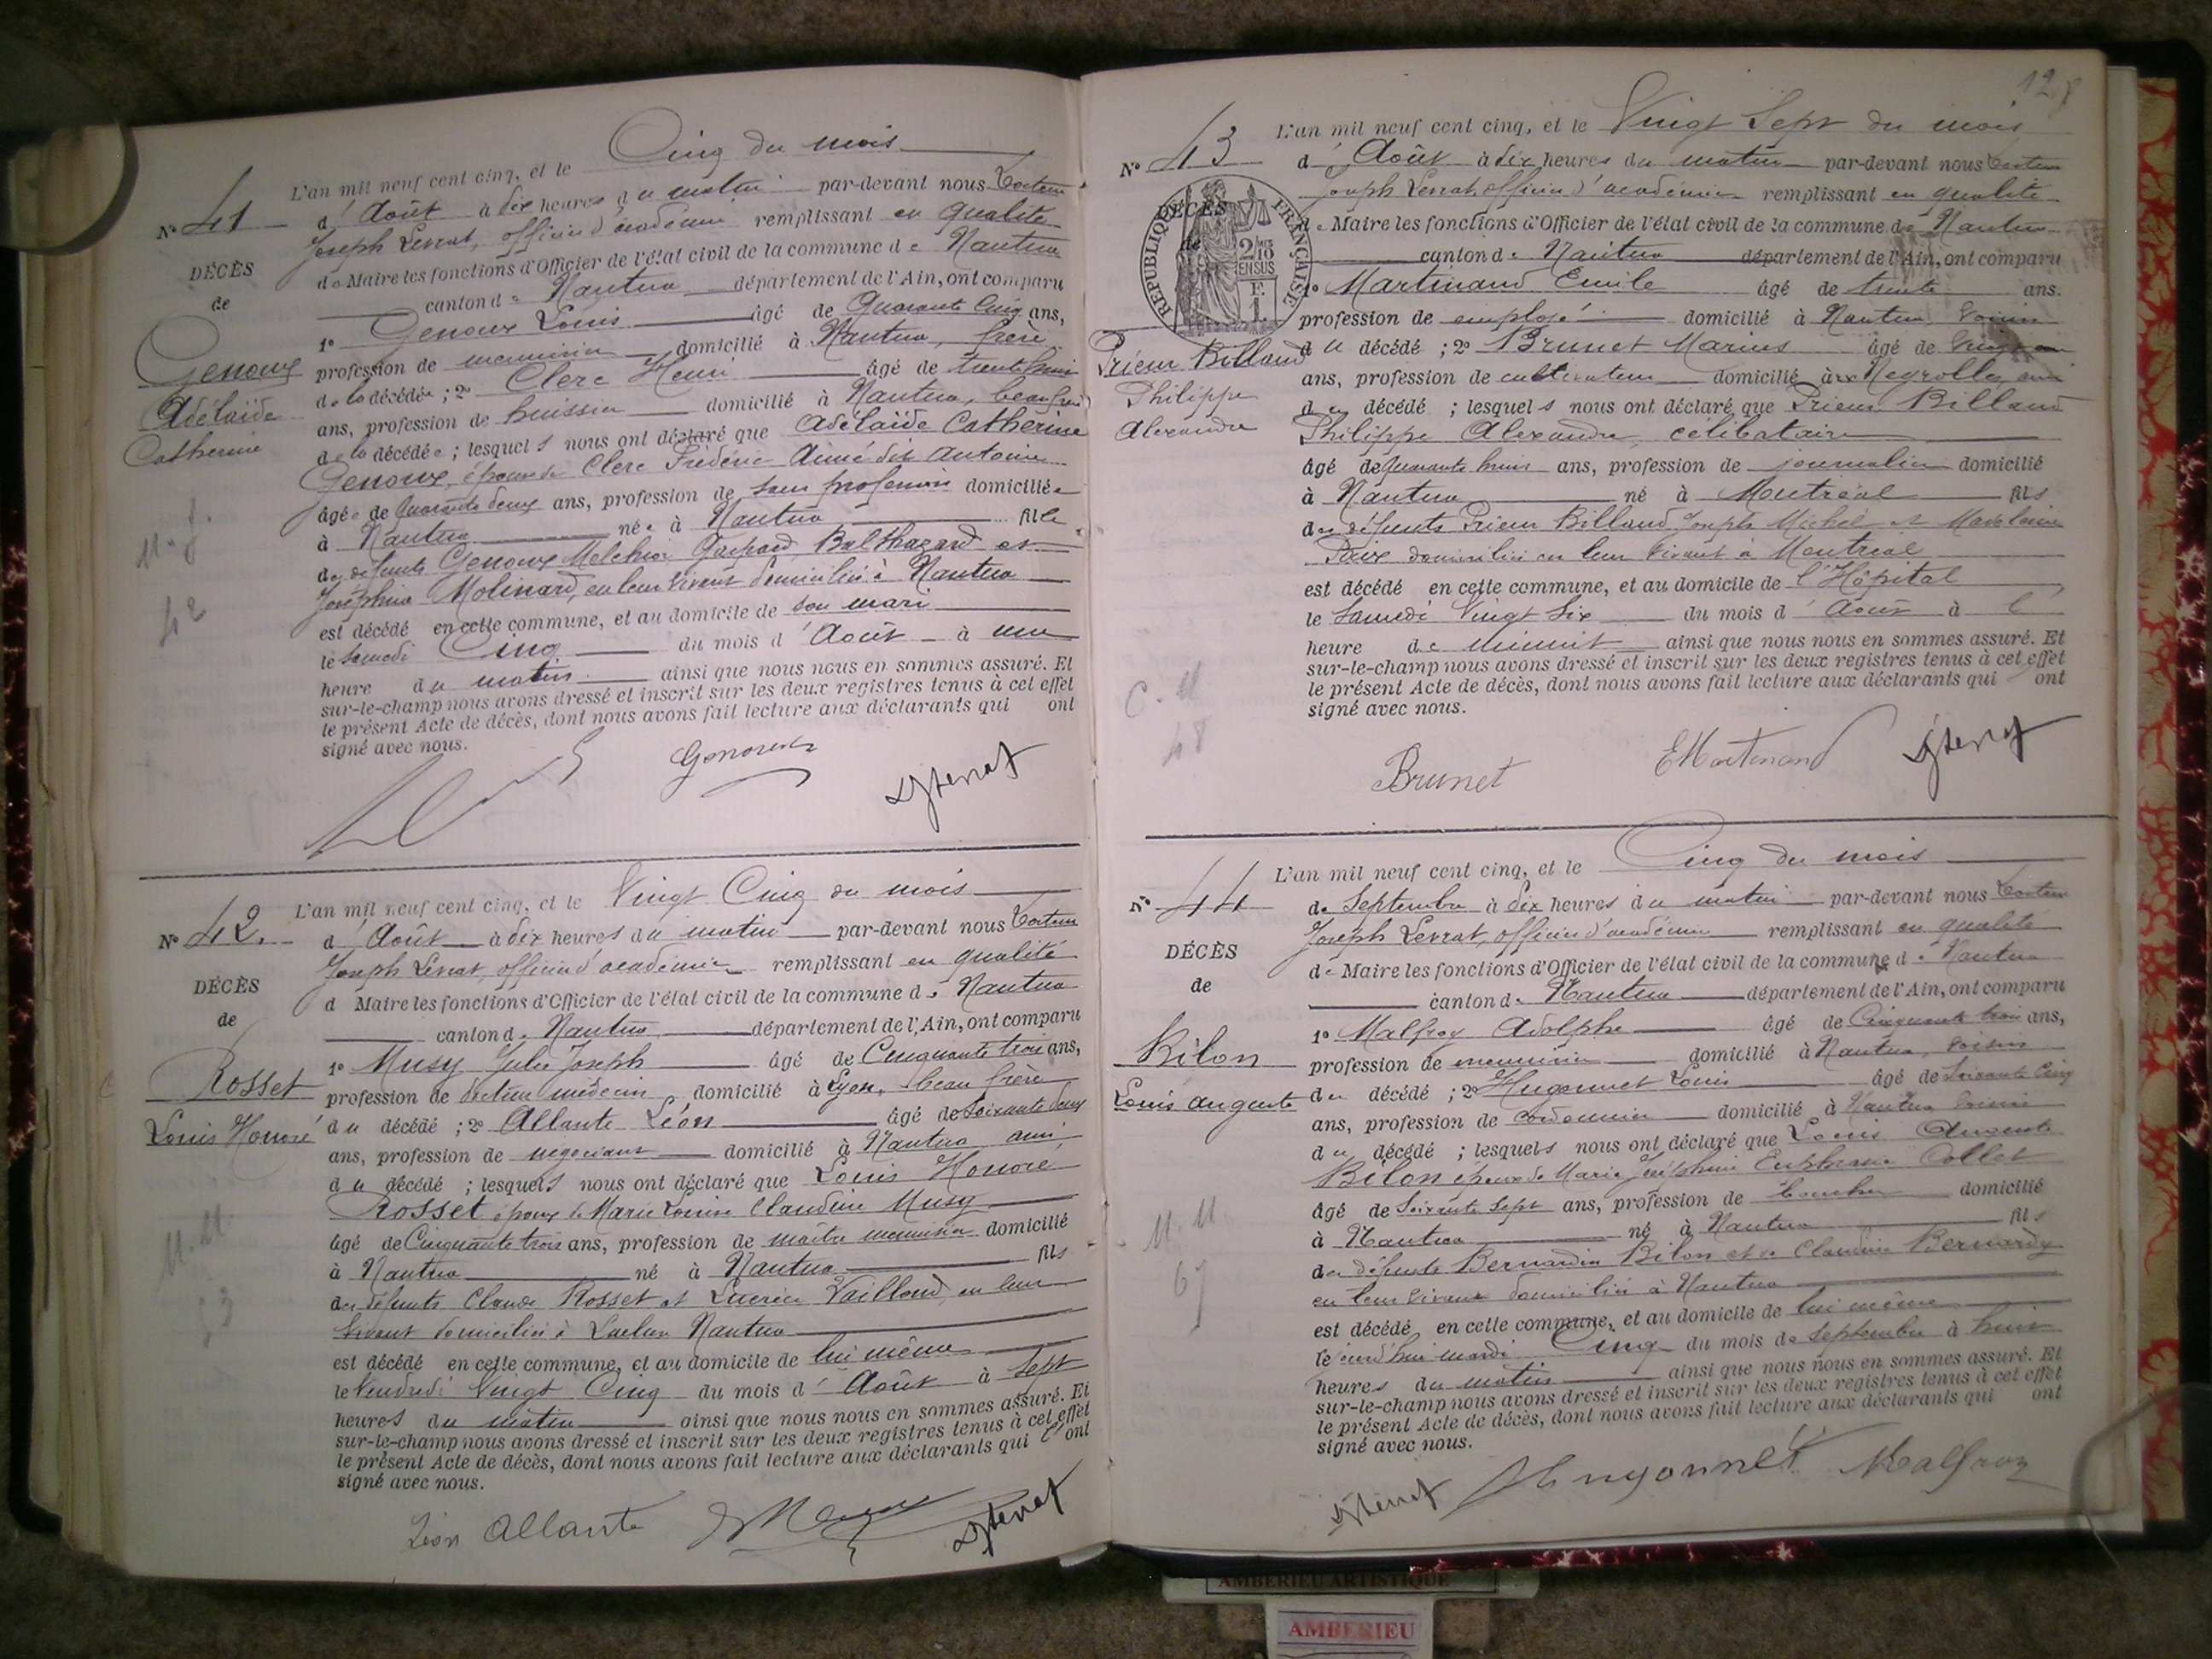 Cinq du mois
L'an mil neuf cent cinq, et le
N° 41
d'Août à dix heures du matin par-devant nous Docteur
Joseph Levrat, officier d'académie remplissant en qualité
DÉCÈS
de Maire les fonctions d'Officier de l'état civil de la commune de Nantua
de
canton de Nantua département de l'Ain, ont comparu
1° Genoux Louis âgé de Quarante Cinq ans,
Genoux
profession de menuisier domicilié à Nantua, frère
Adélaïde
de la décédée ; 2° Clerc Henri âgé de trente huit
Catherine
ans, profession de huissier domicilié à Nantua, beau frère
de la décédée ; lesquels nous ont déclaré que Adélaïde Catherine
Genoux, épouse de Clerc Frédéric Aimé dit Antoine
âgée de Quarante deux ans, profession de sans profession domiciliée
à Nantua née à Nantua fille
M. f.
des défunts Genoux Melchior Gaspard Balthazard et
Joséphine Molinard, en leur vivant domiciliés à Nantua
42
est décédé en cette commune, et au domicile de son mari
le samedi Cinq du mois d'Août à une
heure du matin ainsi que nous nous en sommes assuré. Et
sur-le-champ nous avons dressé et inscrit sur les deux registres tenus à cet effet
le présent Acte de décès, dont nous avons fait lecture aux déclarants qui ont
signé avec nous.
Genoux
L'an mil neuf cent cinq, et le Vingt Cinq du mois
N° 42.
d'Août à dix heures du matin par-devant nous Docteur
Joseph Levrat, officier d'académie remplissant en qualité
DÉCÈS
d Maire les fonctions d'Officier de l'état civil de la commune de Nantua
de
canton de Nantua département de l'Ain, ont comparu
1° Musy Jules Joseph âgé de Cinquante trois ans,
Rosset
profession de docteur médecin domicilié à Lyon, beau frère
Louis Honoré
du décédé ; 2° Allante Léon âgé de Soixante deux
ans, profession de négociant domicilié à Nantua ami
du décédé ; lesquels nous ont déclaré que Louis Honoré
Rosset époux de Marie Louise Claudine Musy
âgé de Cinquante trois ans, profession de maître menuisier domicilié
M. M
à Nantua né à Nantua fils
53
des défunts Claude Rosset et Lucrèce Vailloud, en leur
vivant domiciliés à Nantua
est décédé en cette commune, et au domicile de lui même
le Vendredi Vingt Cinq du mois d'Août à Sept
heures du matin ainsi que nous nous en sommes assuré. Et
sur-le-champ nous avons dressé et inscrit sur les deux registres tenus à cet effet
le présent Acte de décès, dont nous avons fait lecture aux déclarants qui l'ont
signé avec nous.
Léon Allante
128
L'an mil neuf cent cinq, et le Vingt Sept du mois
N° 43
d'Août à dix heures du matin par-devant nous Docteur
Joseph Levrat, officier d'académie remplissant en qualité
DÉCÈS
de Maire les fonctions d'Officier de l'état civil de la commune de Nantua
de
RÉPUBLIQUE FRANÇAISE
2/10 EN SUS
F. 1
canton de Nantua département de l'Ain, ont comparu
1° Martinand Emile âgé de trente ans.
profession de employé domicilié à Nantua voisin
Prieur Billoud
du décédé ; 2° Brunet Marius âgé de
ans, profession de cultivateur domicilié aux Neyrolles ami
Philippe
Alexandre
du décédé ; lesquels nous ont déclaré que Prieur Billoud
Philippe Alexandre, célibataire
âgé de Quarante huit ans, profession de journalier domicilié
à Nantua né à Montréal fils
des défunts Prieur Billoud Joseph Michel et Madelaine
Paix domiciliés en leur vivant à Montréal
est décédé en cette commune, et au domicile de l'Hôpital
le Samedi Vingt Six du mois d'Août à l'
heure de minuit ainsi que nous nous en sommes assuré. Et
sur-le-champ nous avons dressé et inscrit sur les deux registres tenus à cet effet
C. M
le présent Acte de décès, dont nous avons fait lecture aux déclarants qui ont
signé avec nous.
48
Brunet
EMartinand
L'an mil neuf cent cinq, et le Cinq du mois
N° 44
de Septembre à dix heures du matin par-devant nous Docteur
Joseph Levrat, officier d'académie remplissant en qualité
DÉCÈS
de Maire les fonctions d'Officier de l'état civil de la commune de Nantua
de
canton de Nantua département de l'Ain, ont comparu
1° Malfroy Adolphe âgé de Cinquante trois ans,
Bilon
profession de menuisier domicilié à Nantua, voisin
Louis Auguste
du décédé ; 2° Hugonnet Louis âgé de Soixante Cinq
ans, profession de cordonnier domicilié à Nantua voisin
du décédé ; lesquels nous ont déclaré que Louis Auguste
Bilon époux de Marie Joséphine Euphrasie Collet
âgé de Soixante Sept ans, profession de boucher domicilié
M. M.
à Nantua né à Nantua fils
67
des défunts Bernardin Bilon et de Claudine Bernardy
en leur vivant domiciliés à Nantua
est décédé en cette commune, et au domicile de lui même
le jourd'hui mardi Cinq du mois de Septembre à huit
heures du matin ainsi que nous nous en sommes assuré. Et
sur-le-champ nous avons dressé et inscrit sur les deux registres tenus à cet effet
le présent Acte de décès, dont nous avons fait lecture aux déclarants qui ont
signé avec nous.
Hugonnet
Malfroy
AMBERIEU ARTISTIQUE
AMBERIEU